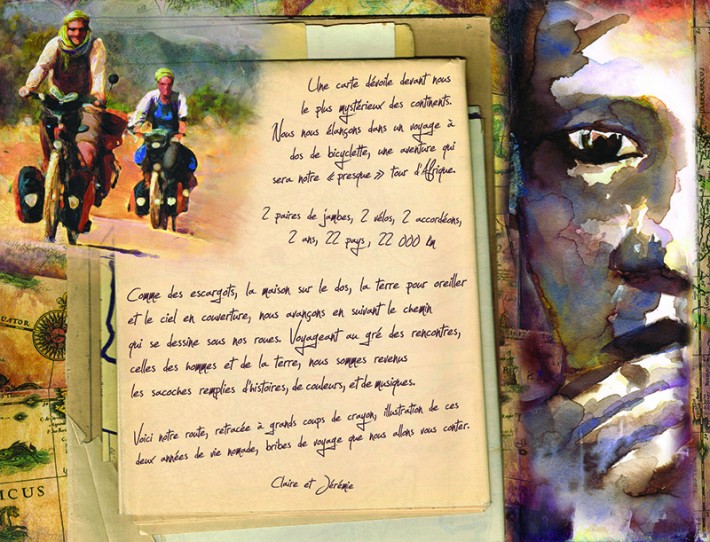 Une carte dévoile devant nous
le plus mystérieux des continents.
Nous nous élançons dans un voyage à
dos de bicyclette, une aventure qui
sera nôtre « presque » tour d'Afrique.
2 paires de jambes, 2 vélos, 2 accordéons,
2 ans, 22 pays, 22 000 km
Comme des escargots, la maison sur le dos, la terre pour oreiller
et le ciel en couverture, nous avançons en suivant le chemin
qui se dessine sous nos roues. Voyageant au gré des rencontres,
celles des hommes et de la terre, nous sommes revenus
les sacoches remplies d'histoires, de couleurs, et de musiques.
Voici nôtre route, retracée à grands coups de crayon, illustration de ces
deux années de vie nomade, bribes de voyage que nous allons vous conter.
Claire et Jérémie
UATOR